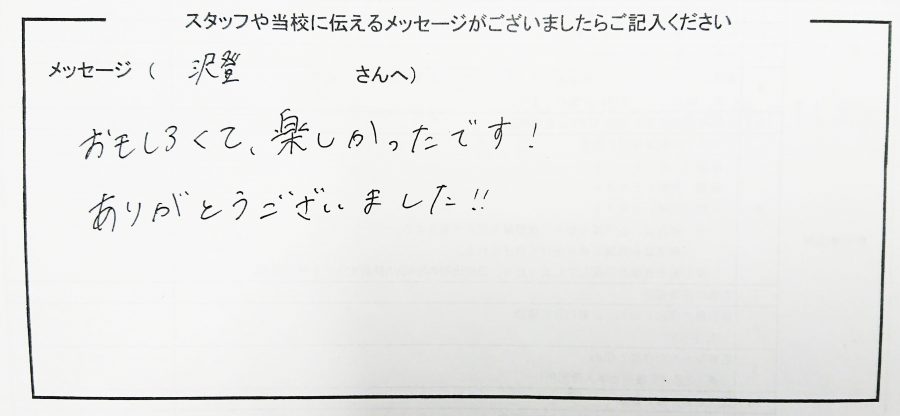 スタッフや当校に伝えるメッセージがございましたらご記入ください
メッセージ （ 沢登 さんへ）
おもしろくて、楽しかったです！
ありがとうございました!!